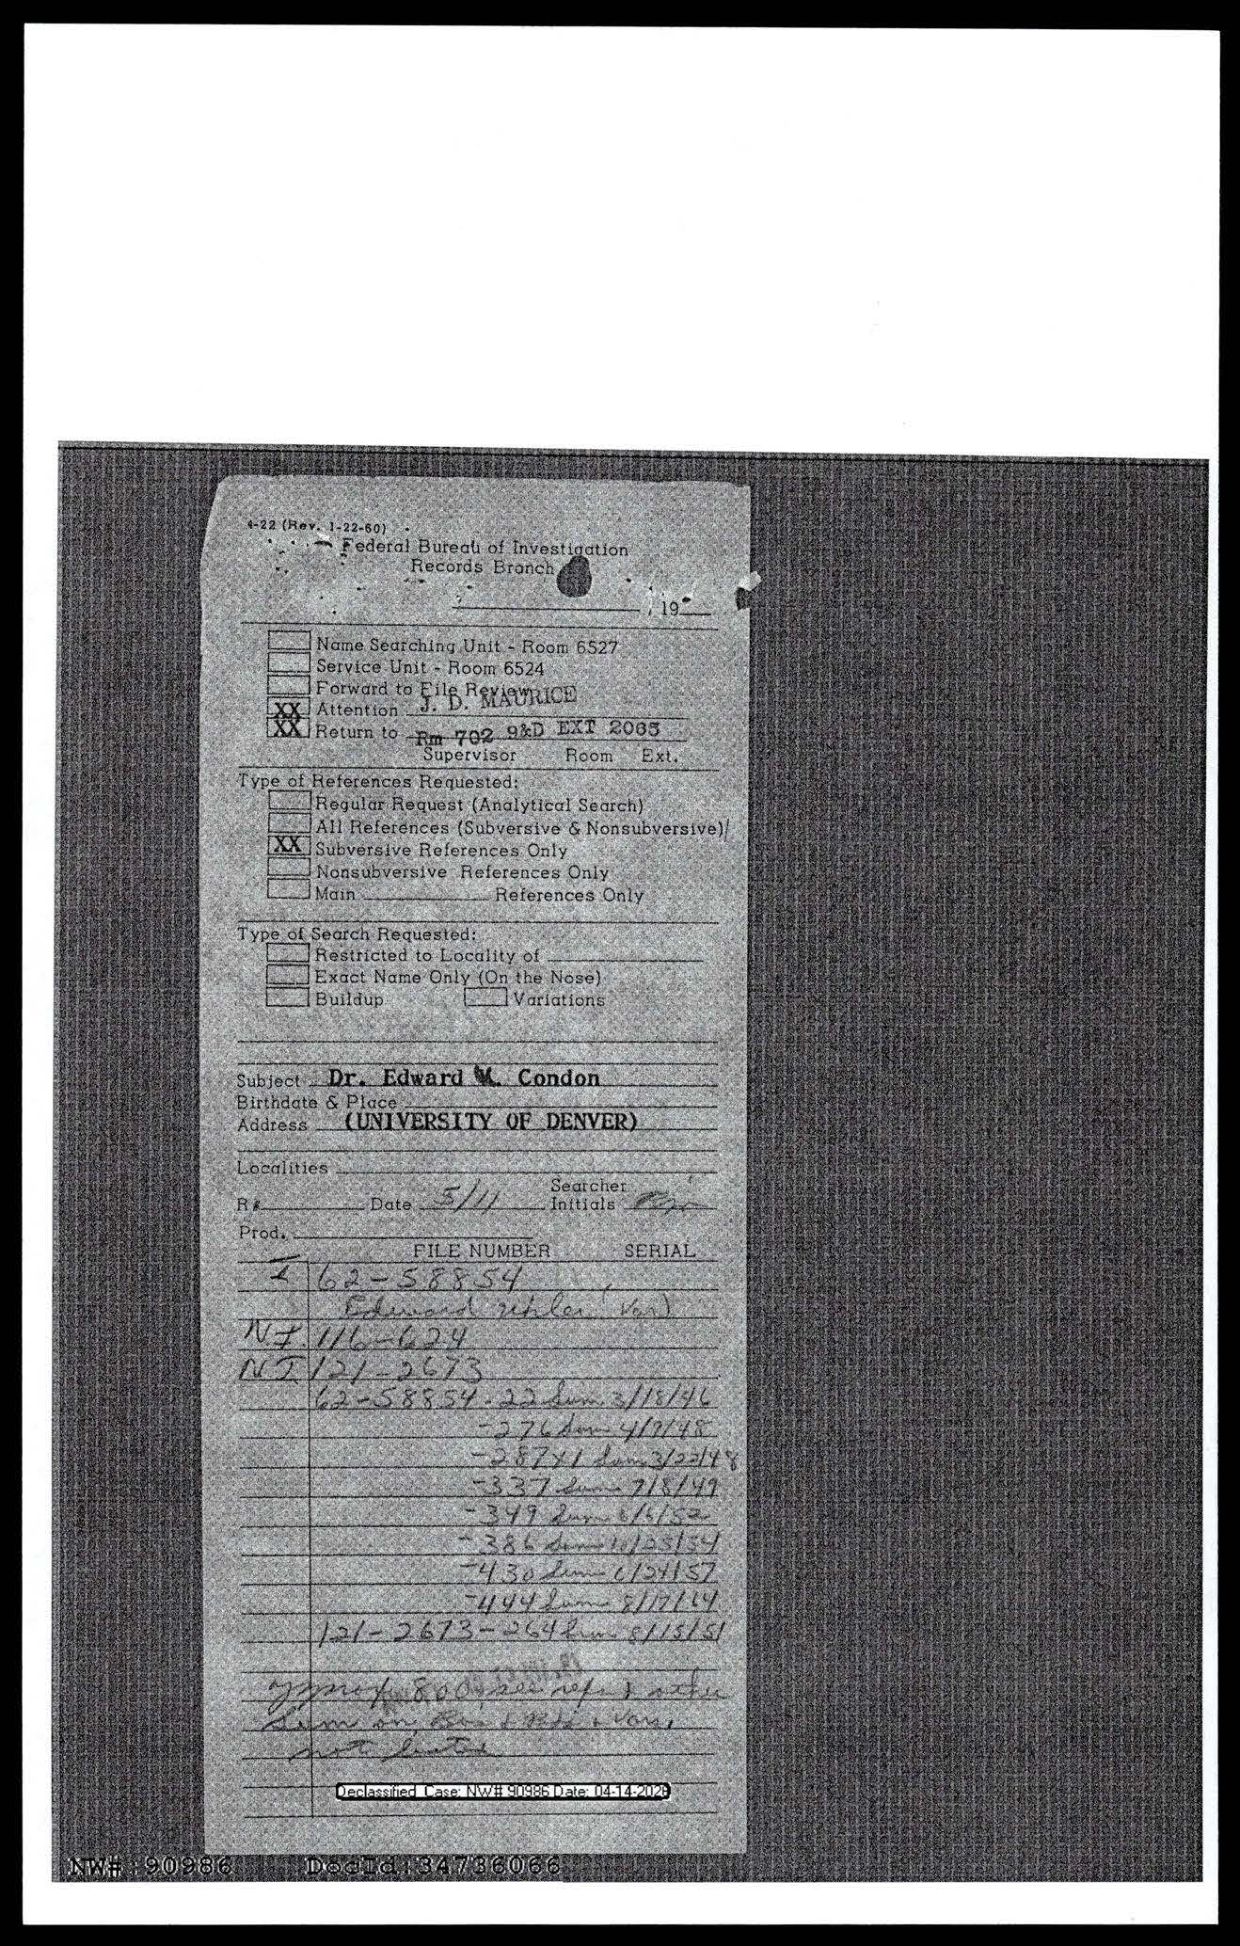 4-22 (Rev. 1-22-60)
Federal Bureau of Investigation
Records Branch
, 19
Name Searching Unit - Room 6527
Service Unit - Room 6524
Forward to File Review
XX Attention J. D. MAURICE
XX Return to Rm 702 9&D EXT 2065
Supervisor Room Ext.
Type of References Requested:
Regular Request (Analytical Search)
All References (Subversive & Nonsubversive)
XX Subversive References Only
Nonsubversive References Only
Main References Only
Type of Search Requested:
Restricted to Locality of
Exact Name Only (On the Nose)
Buildup Variations
Subject Dr. Edward Condon
Birthdate & Place
Address (UNIVERSITY OF DENVER)
Localities
R# Date 5/11 Searcher Initials
Prod.
FILE NUMBER SERIAL
I 62-58854
Edward Uhler (Var)
NI 116-624
NI 121-2673
62-58854-22 Sum 3/18/46
-276 Sum 4/7/48
-287X1 Sum 3/22/48
-337 Sum 7/8/49
-349 Sum 6/6/52
-386 Sum 11/23/54
-430 Sum 6/24/57
-444 Sum 8/17/64
121-2673-264 Sum 8/15/51
800 see ref
sum on
not listed
Declassified Case: NW# 90986 Date: 04-14-2026
NW#: 90986 DocId:34736066